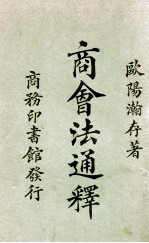 歐陽瀚存著
商會法通釋
商務印書館發行